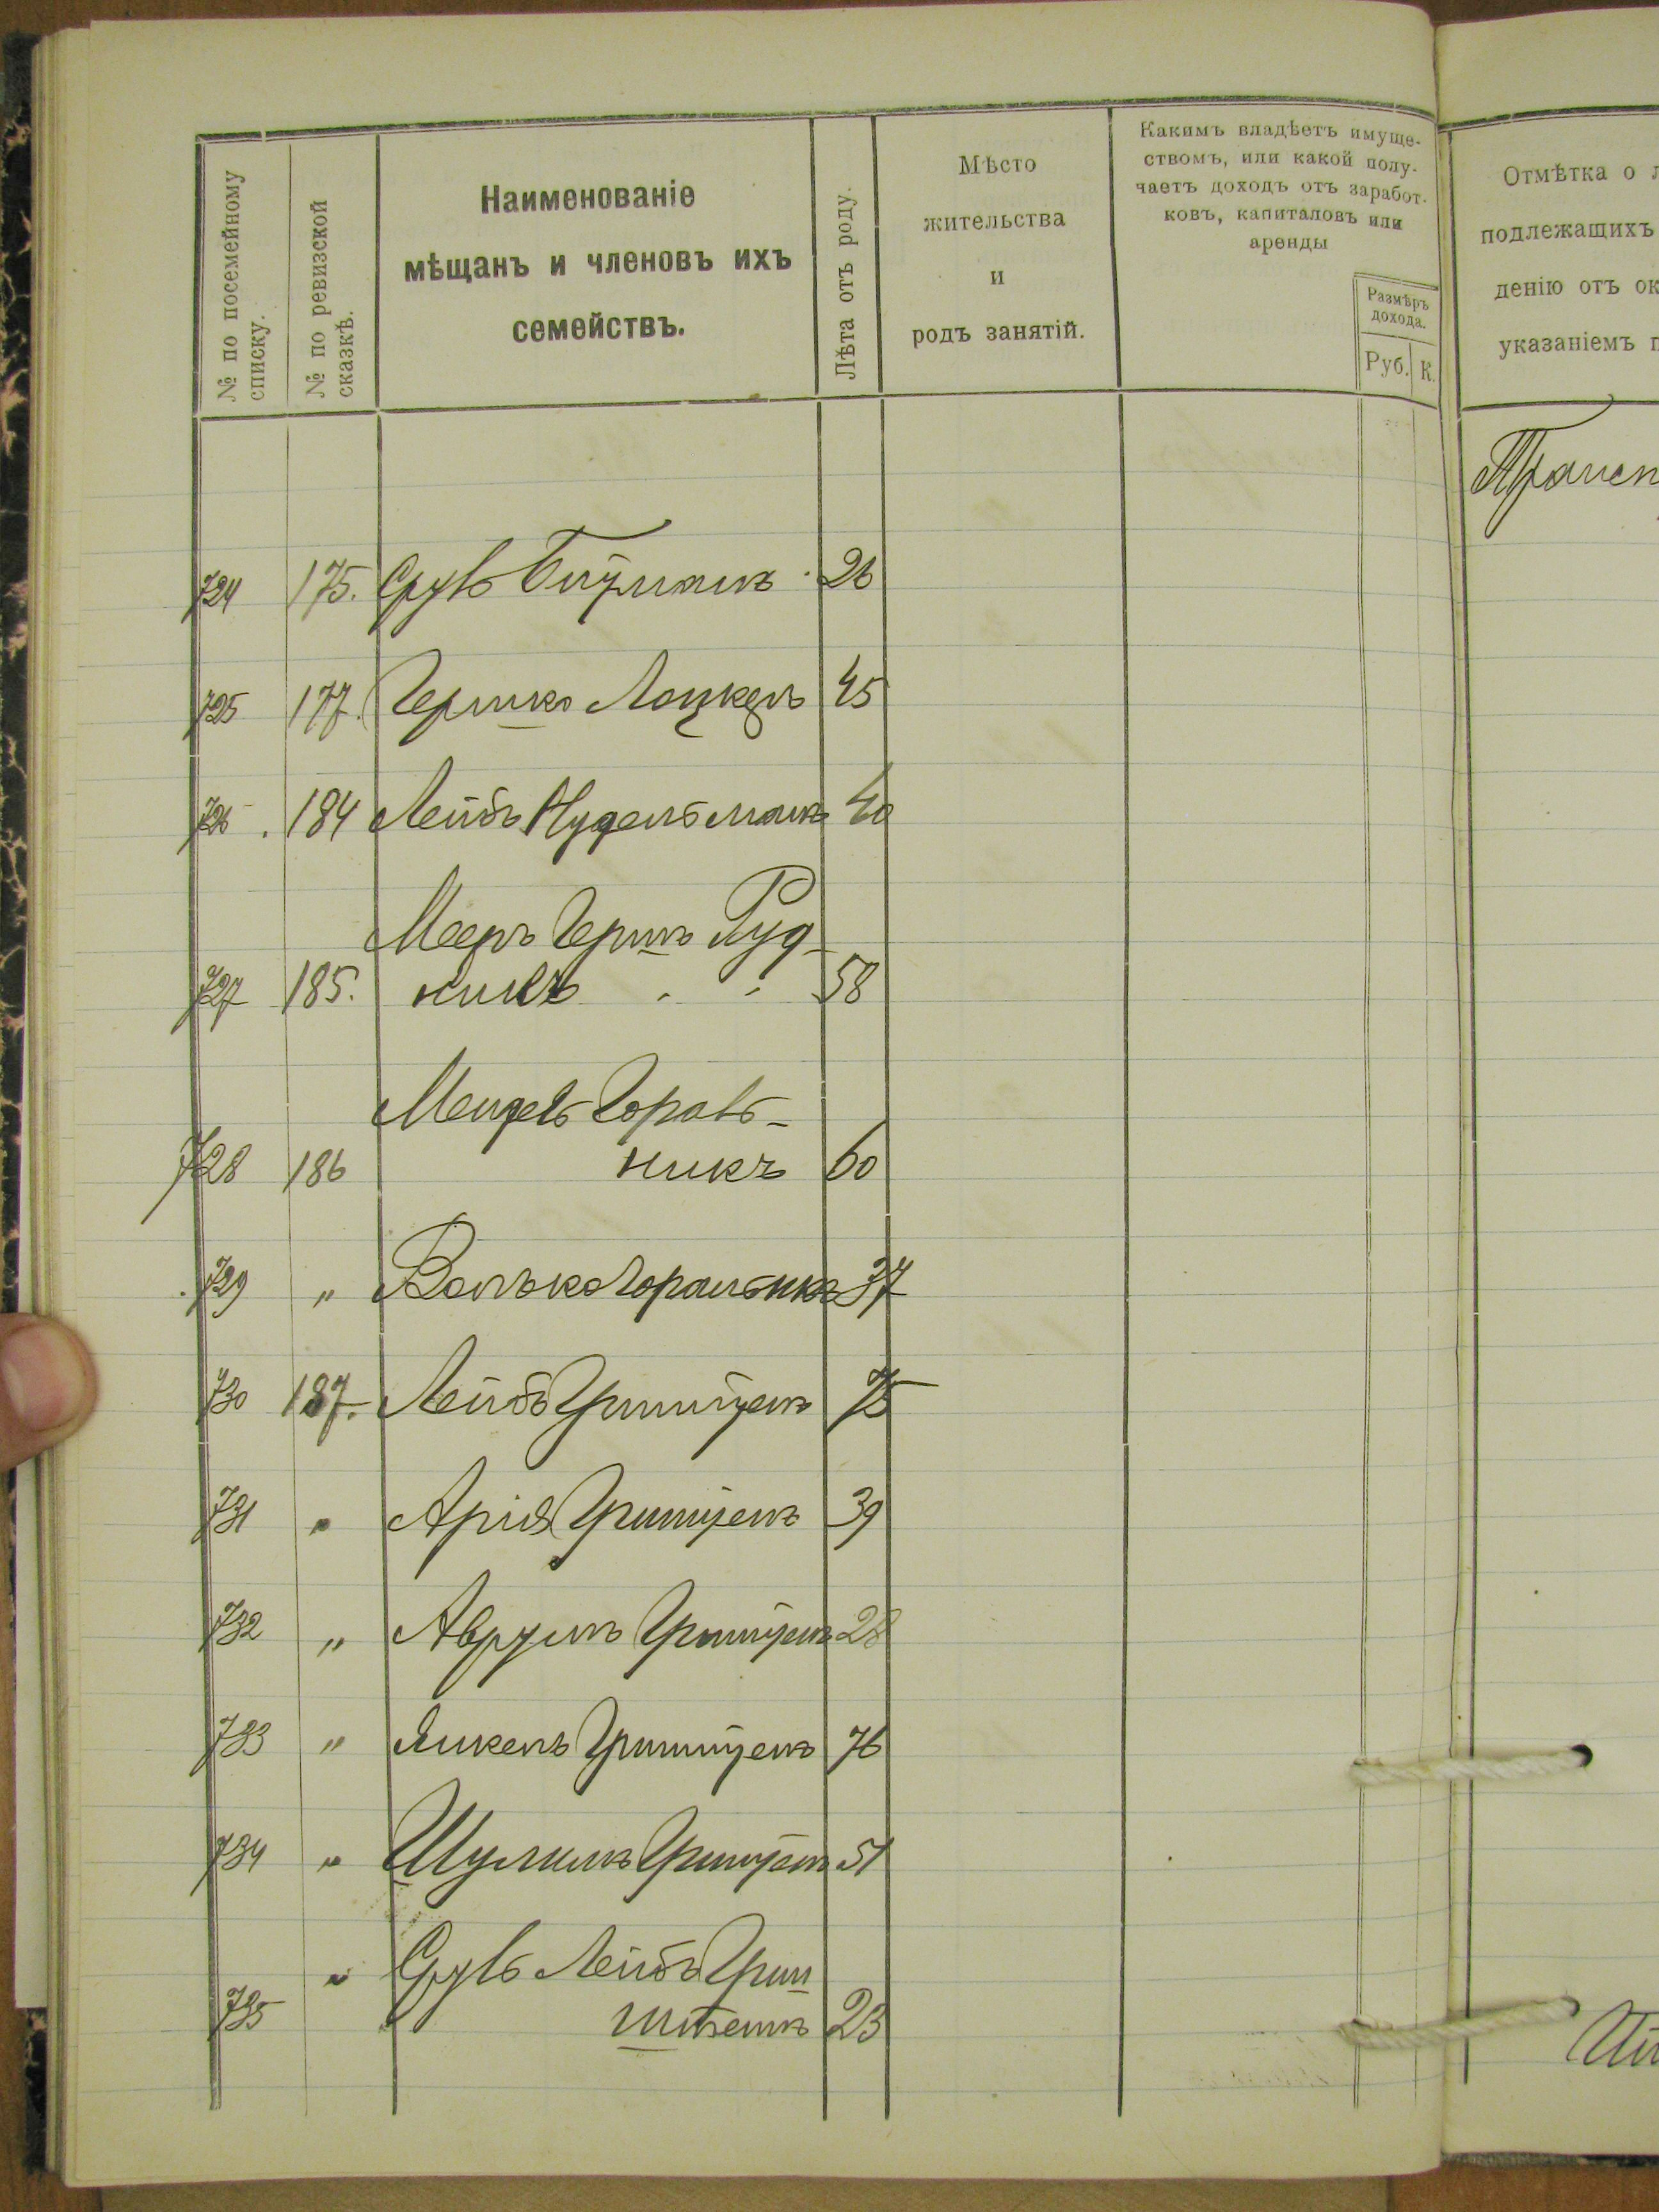 № по посемейному
списку.
№ по ревизской
сказкѣ.
Наименованіе
мѣщанъ и членовъ ихъ
семействъ.
Лѣта отъ роду.
Мѣсто
жительства
и
родъ занятій.
Какимъ владѣетъ имуще-
ствомъ, или какой полу-
чаетъ доходъ отъ заработ-
ковъ, капиталовъ или
аренды
Размѣръ
дохода.
Руб. К.
Отмѣтка о
подлежащихъ
денію отъ ок
указаніемъ п
724 175. Сруль 26
725 177. Гершко Лоцкеръ 45
726 184 Лейбъ Нудельманъ 40
Мееръ Гершъ Руд-
727 185. никъ 58
Мендель Гораль-
728 186 никъ 60
729 „ Волько Горальникъ 37
730 187. Лейбъ Гринштейнъ 75
731 „ Арія Гринштейнъ 39
732 „ Аврумъ Гринштейнъ 28
733 „ Янкель Гринштейнъ 76
734 „ Шулимъ Гринштейнъ 51
„ Сруль Лейбъ Грин
735 штейнъ 23